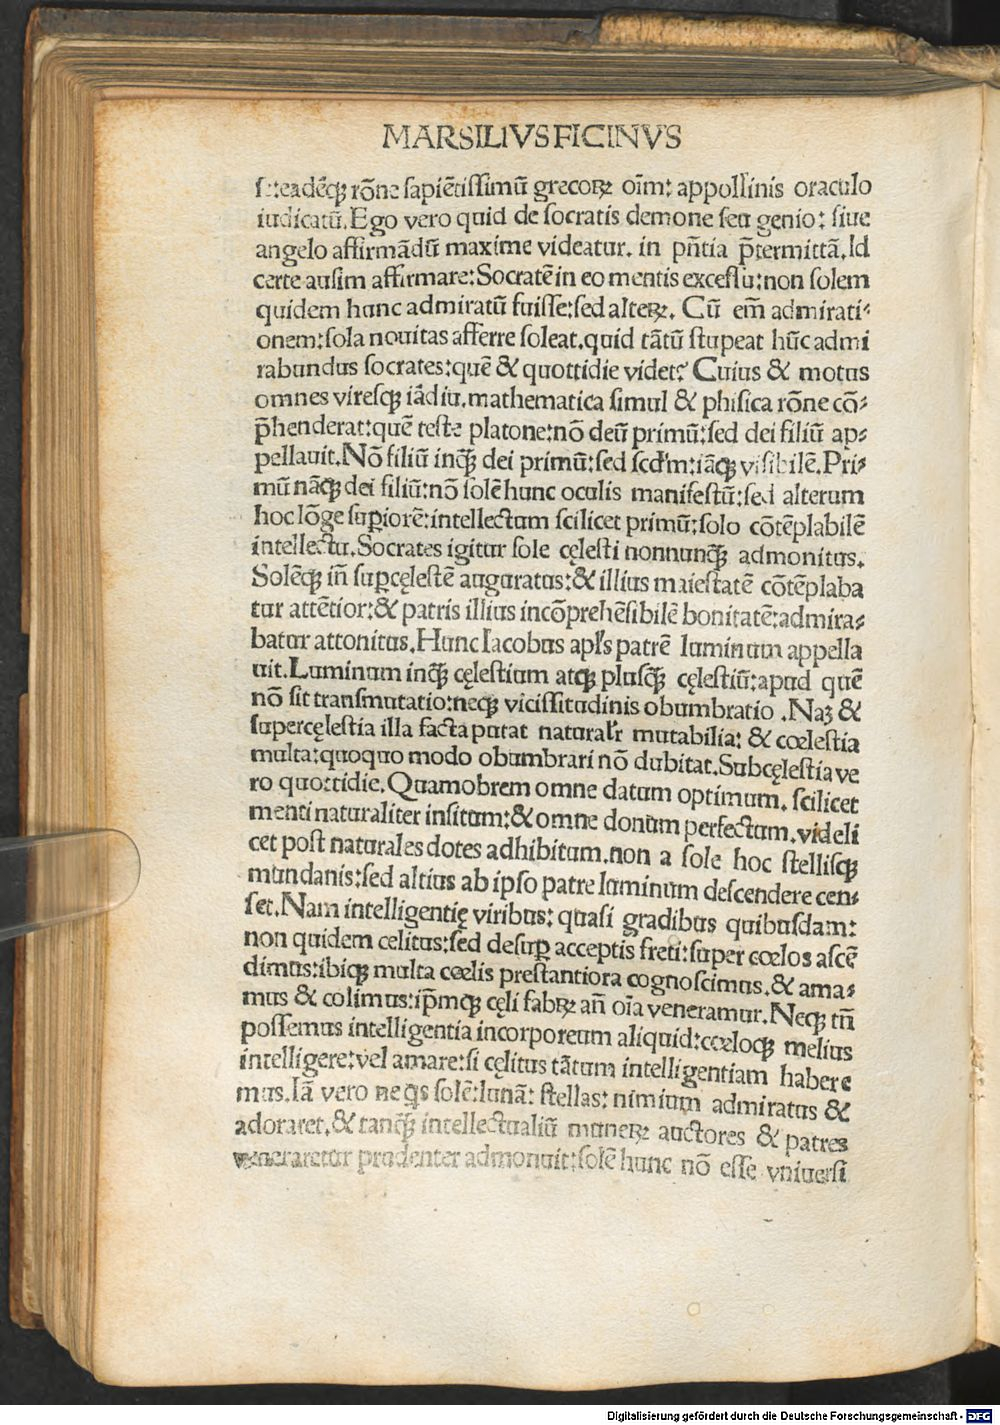 MARSILIVS FICINVS
se:eadēqꝫ rōne sapiētissimū grecoꝝ oīm: appollinis oraculo
iudicatū. Ego vero quid de socratis demone seu genio: siue
angelo affirmādū maxime videatur. in pn̄tia p̄termittā. Id
certe ausim affirmare: Socratē in eo mentis excessu: non solem
quidem hunc admiratū fuisse: sed alteꝝ. Cū em̄ admirati⸗
onem: sola nouitas afferre soleat. quid tātū stupeat hūc admi
rabundus socrates: quē & quottidie videt? Cuius & motus
omnes viresqꝫ iādiu. mathematica simul & phisica rōne cō⸗
p̄henderat: quē teste platone: nō deū primū: sed dei filiū ap⸗
pellauit. Nō filiū inqꝫ̄ dei primū: sed scd̄m: iāqꝫ visibilē. Pri⸗
mū nāqꝫ dei filiū: nō solē hunc oculis manifestū: sed alterum
hoc lōge suꝑiorē: intellectum scilicet primū: solo cōtēplabilē
intellectu. Socrates igitur sole cęlesti nonnunqꝫ̄ admonitus.
Solēqꝫ in̄ suꝑcęlestē auguratus: & illius maiestatē cōtēplaba
tur attētior: & patris illius incōprehēsibilē bonitatē: admira⸗
batur attonitus. Hunc Iacobus apl's patrē luminum appella
uit. Luminum inqꝫ̄ cęlestium atqꝫ plusqꝫ̄ cęlestiū: apud quē
nō sit transmutatio: neqꝫ vicissitudinis obumbratio. Naꝫ &
supercęlestia illa facta putat natural'r mutabilia: & cœlestia
multa: quoquo modo obumbrari nō dubitat. Subcęlestia ve
ro quottidie. Quamobrem omne datum optimum. scilicet
menti naturaliter insitum: & omne donum perfectum. videli
cet post naturales dotes adhibitum. non a sole hoc stellisqꝫ
mundanis: sed altius ab ipso patre luminum descendere cen⸗
set. Nam intelligentię viribus: quasi gradibus quibusdam:
non quidem celitus: sed desuꝑ acceptis freti: super cœlos ascē
dimus: ibiqꝫ multa cœlis prestantiora cognoscimus. & ama⸗
mus & colimus: ip̄mqꝫ cęli fabꝝ an̄ oīa veneramur. Neqꝫ tn̄
possemus intelligentia incorporeum aliquid: cœloqꝫ melius
intelligere: vel amare: si cęlitus tātum intelligentiam habere
mus. Iā vero ne qͥs solē: lunā: stellas: nimium admiratus &
adoraret. & tanqꝫ̄ intellectualiū muneꝝ auctores & patres
veneraretur prudenter admonuit: solē hunc nō esse vniuersi
Digitalisierung gefördert durch die Deutsche Forschungsgemeinschaft - DFG